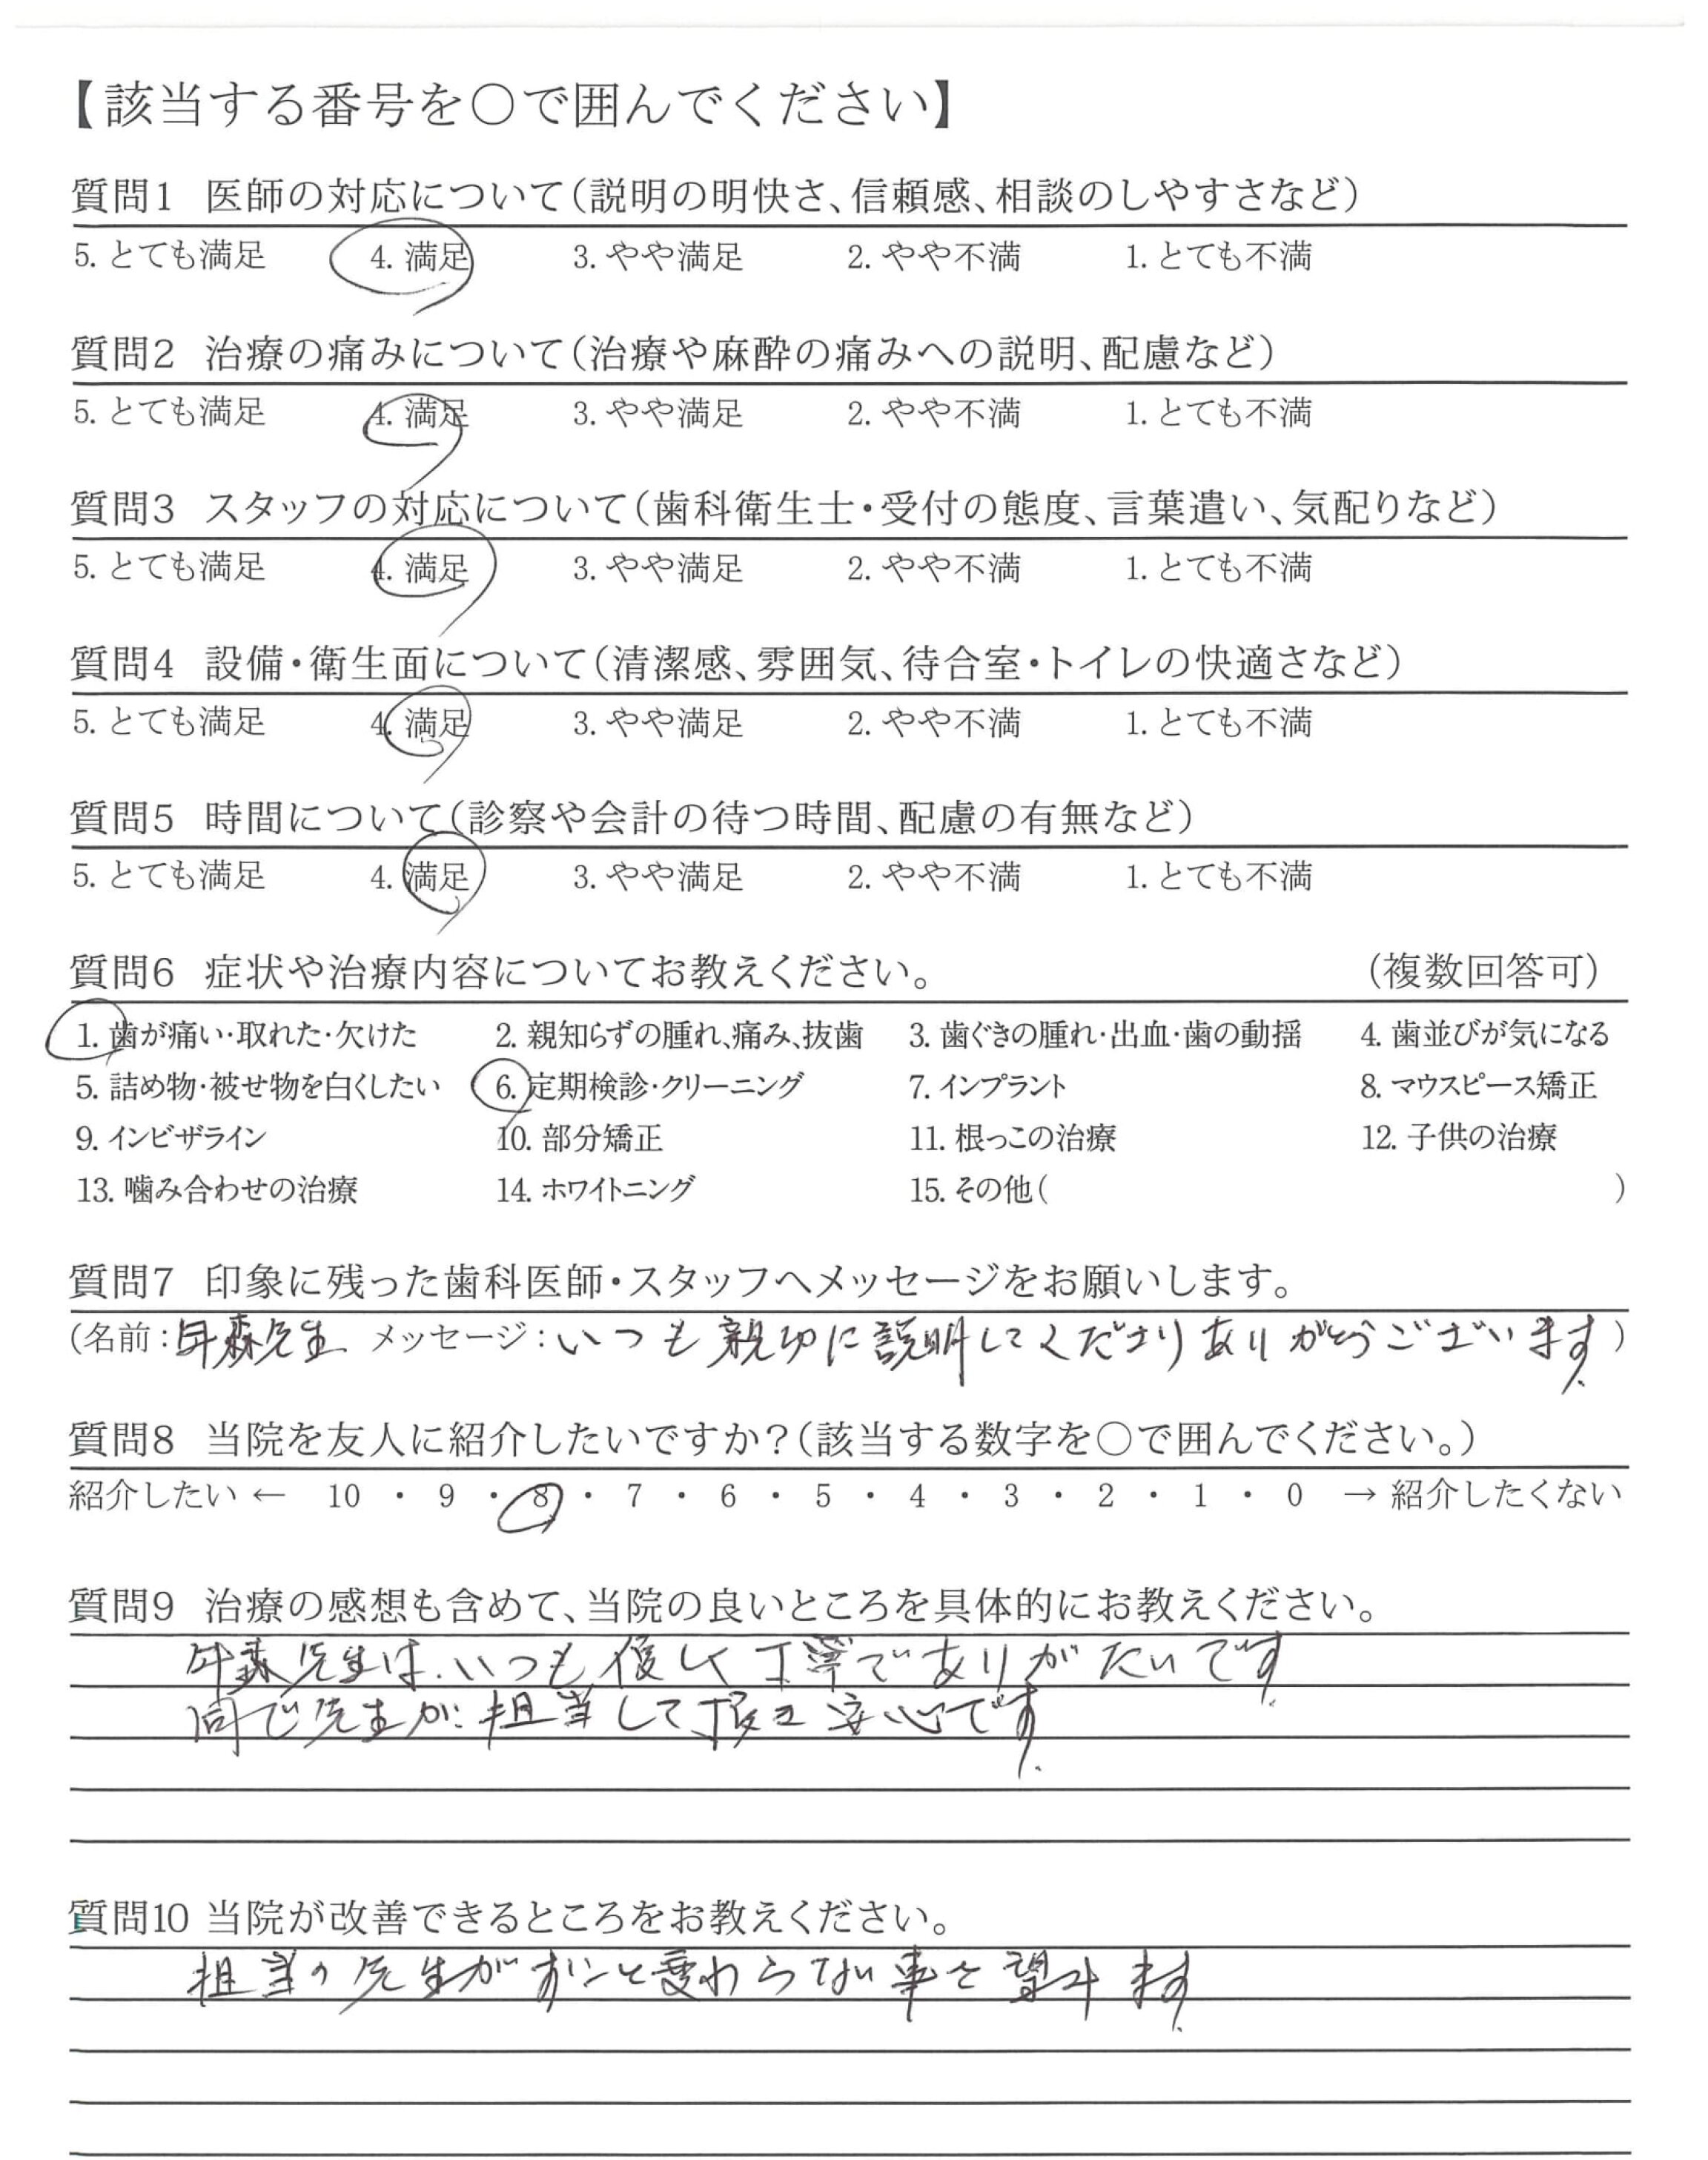 【該当する番号を○で囲んでください】
質問1 医師の対応について(説明の明快さ、信頼感、相談のしやすさなど)
5. とても満足 4. 満足 3. やや満足 2. やや不満 1. とても不満
質問2 治療の痛みについて(治療や麻酔の痛みへの説明、配慮など)
5. とても満足 4. 満足 3. やや満足 2. やや不満 1. とても不満
質問3 スタッフの対応について(歯科衛生士・受付の態度、言葉遣い、気配りなど)
5. とても満足 4. 満足 3. やや満足 2. やや不満 1. とても不満
質問4 設備・衛生面について(清潔感、雰囲気、待合室・トイレの快適さなど)
5. とても満足 4. 満足 3. やや満足 2. やや不満 1. とても不満
質問5 時間について(診察や会計の待つ時間、配慮の有無など)
5. とても満足 4. 満足 3. やや満足 2. やや不満 1. とても不満
質問6 症状や治療内容についてお教えください。 (複数回答可)
1. 歯が痛い・取れた・欠けた 2. 親知らずの腫れ、痛み、抜歯 3. 歯ぐきの腫れ・出血・歯の動揺 4. 歯並びが気になる
5. 詰め物・被せ物を白くしたい 6. 定期検診・クリーニング 7. インプラント 8. マウスピース矯正
9. インビザライン 10. 部分矯正 11. 根っこの治療 12. 子供の治療
13. 噛み合わせの治療 14. ホワイトニング 15. その他( )
質問7 印象に残った歯科医師・スタッフへメッセージをお願いします。
(名前: 先生 メッセージ:いつも親切に説明してくださりありがとうございます)
質問8 当院を友人に紹介したいですか?(該当する数字を○で囲んでください。)
紹介したい ← 10 ・ 9 ・ 8 ・ 7 ・ 6 ・ 5 ・ 4 ・ 3 ・ 2 ・ 1 ・ 0 → 紹介したくない
質問9 治療の感想も含めて、当院の良いところを具体的にお教えください。
先生は、いつも優しく丁寧でありがたいです
同じ先生が担当して頂き安心です。
質問10 当院が改善できるところをお教えください。
担当の先生がずっと変わらない事を望みます。